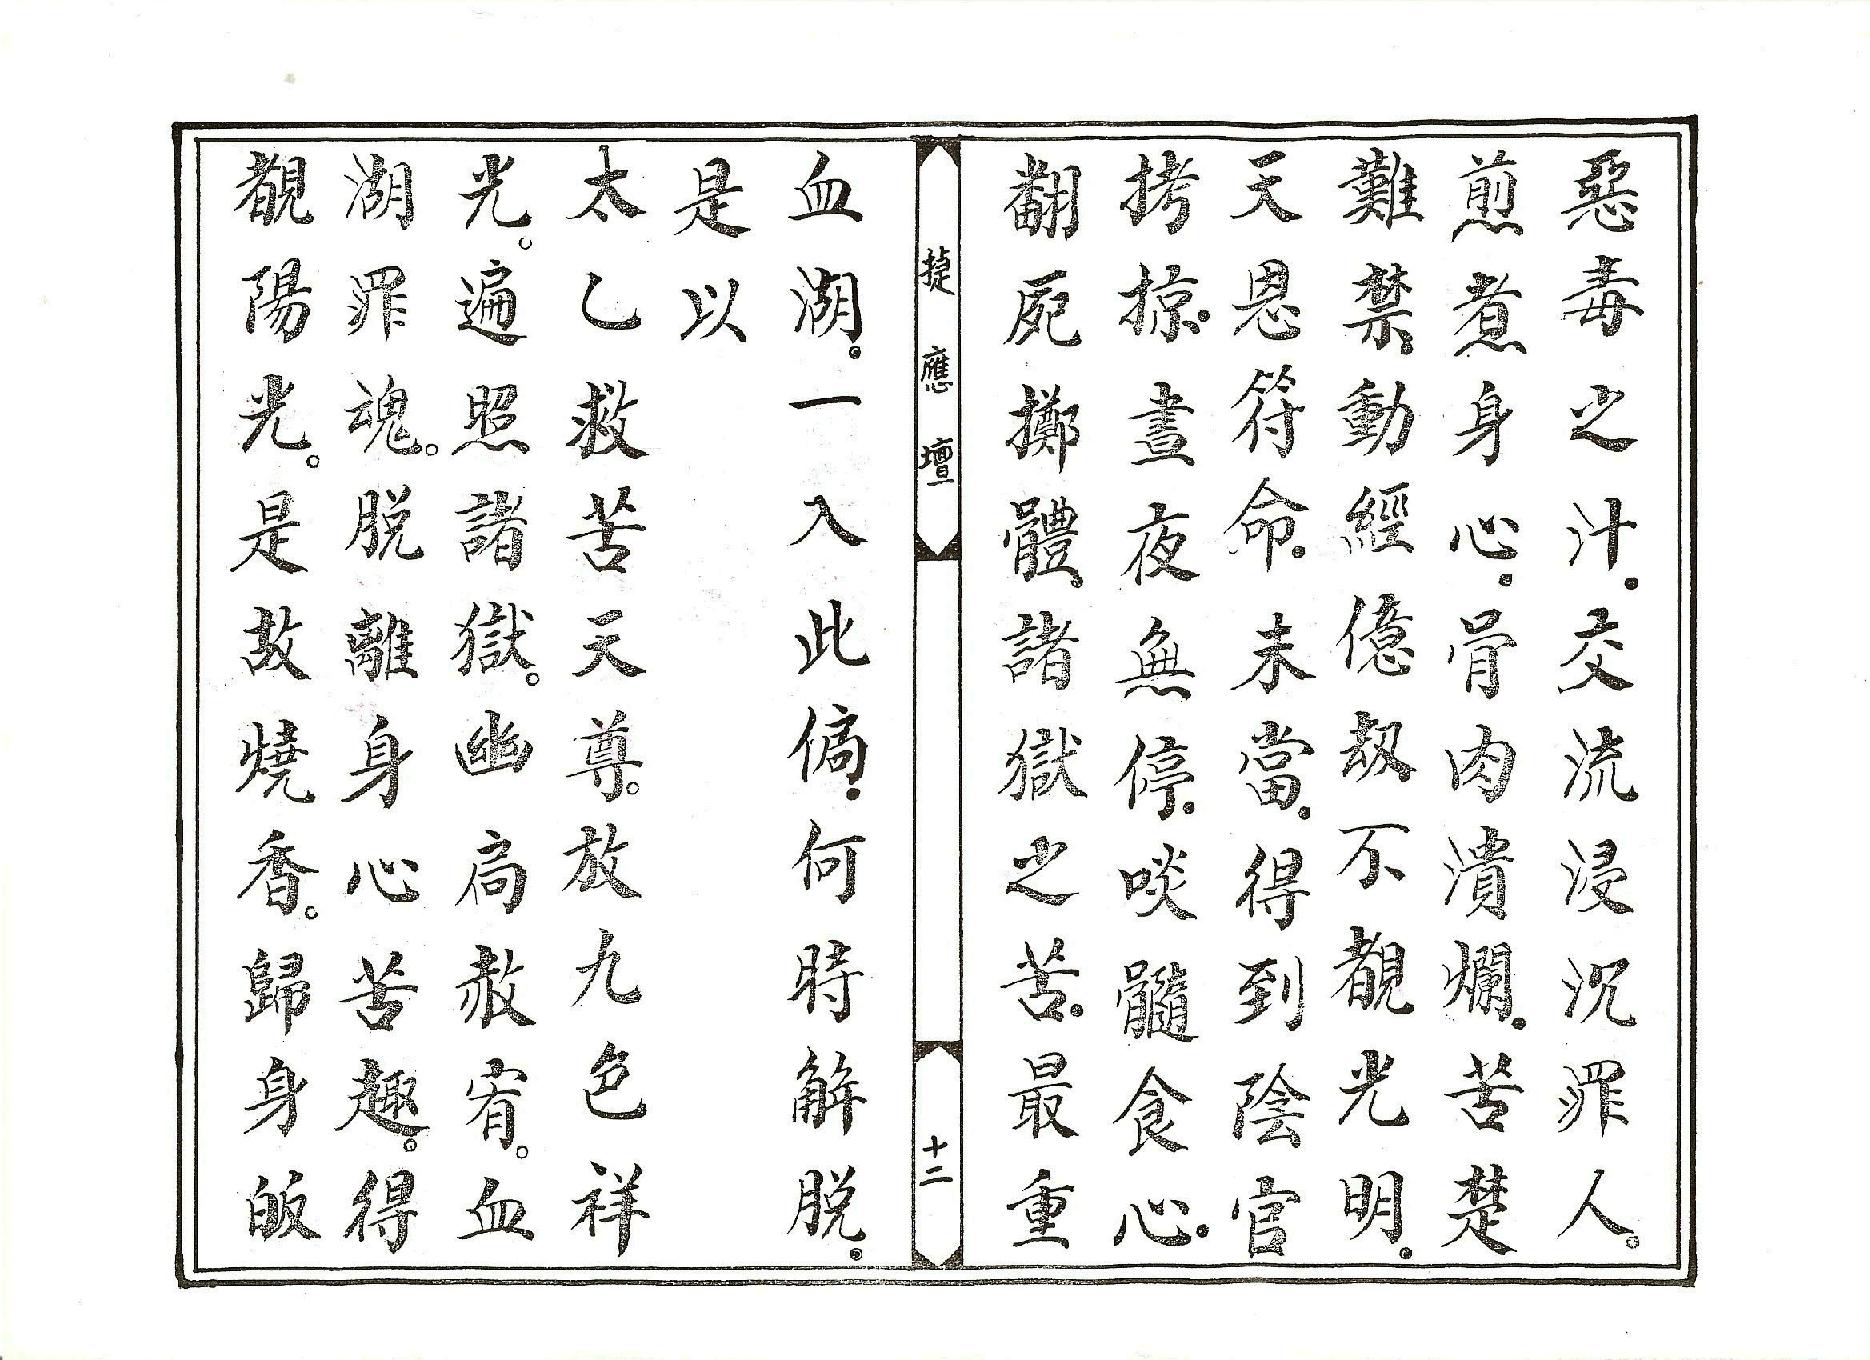 惡毒之汁.交流浸沉罪人。
煎煮身心.骨肉潰爛.苦楚
難禁.動經億劫不覩光明.
天恩符命.未當.得到陰官
拷掠.晝夜無停.啖髓食心.
翻屍擲體.諸獄之苦.最重
捷應壇
十二
血湖.一入此傐.何時解脫.
是以
太乙救苦天尊。放九色祥
光。遍照諸獄。幽扃赦宥。血
湖罪魂。脫離身心苦趣。得
覩陽光。是故燒香。歸身皈